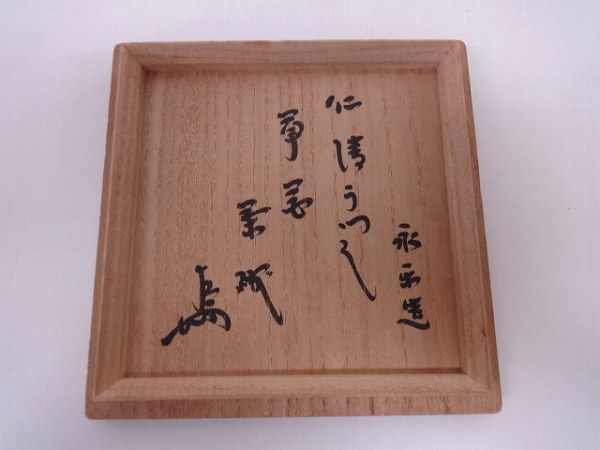 永楽造
仁清うつし
草花
茶碗